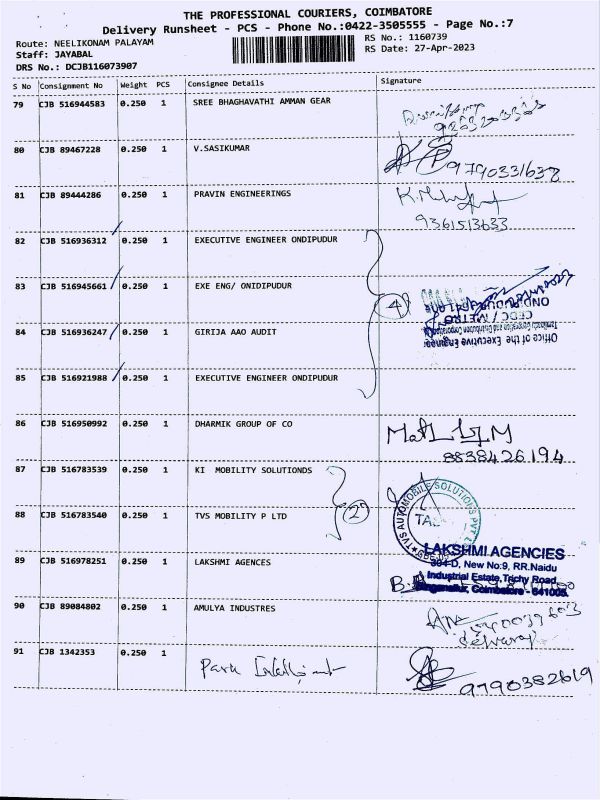 THE PROFESSIONAL COURIERS, COIMBATORE
Delivery Runsheet - PCS - Phone No.:0422-3505555 - Page No.:7
Route: NEELIKONAM PALAYAM
RS No.: 1160739
Staff: JAYABAL
RS Date: 27-Apr-2023
DRS No.: DCJB116073907
S No Consignment No Weight PCS Consignee Details Signature
79 CJB 516944583 0.250 1 SREE BHAGHAVATHI AMMAN GEAR
80 CJB 89467228 0.250 1 V.SASIKUMAR
9790331632
81 CJB 89444286 0.250 1 PRAVIN ENGINEERINGS
9361513633
82 CJB 516936312 0.250 1 EXECUTIVE ENGINEER ONDIPUDUR
83 CJB 516945661 0.250 1 EXE ENG/ ONIDIPUDUR
4
Office of the Executive Engineer
CEDC / METRO
84 CJB 516936247 0.250 1 GIRIJA AAO AUDIT
85 CJB 516921988 0.250 1 EXECUTIVE ENGINEER ONDIPUDUR
86 CJB 516950992 0.250 1 DHARMIK GROUP OF CO
8838426194
87 CJB 516783539 0.250 1 KI MOBILITY SOLUTIONDS
2
88 CJB 516783540 0.250 1 TVS MOBILITY P LTD
TVS AUTOMOBILE SOLUTIONS PVT
89 CJB 516978251 0.250 1 LAKSHMI AGENCES
LAKSHMI AGENCIES
304-D, New No:9, RR.Naidu
Industrial Estate, Trichy Road
Coimbatore - 641005.
90 CJB 89084802 0.250 1 AMULYA INDUSTRES
91 CJB 1342353 0.250 1
Park
9790382619